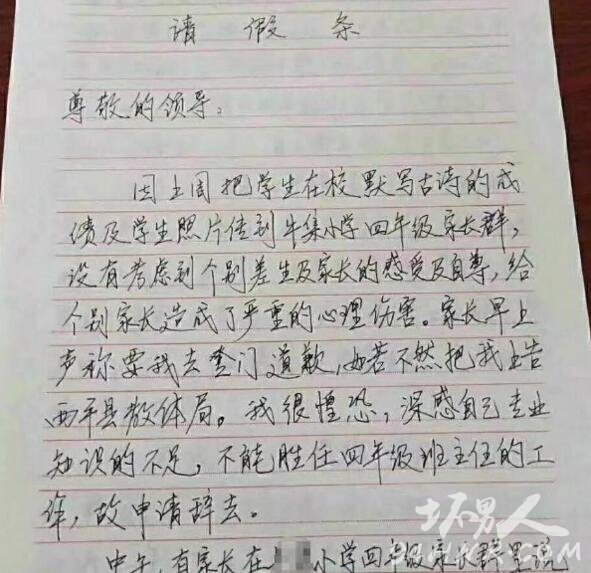 请假条
尊敬的领导:
因上周把学生在校默写古诗的成
绩及学生照片传到牛集小学四年级家长群,
没有考虑到个别差生及家长的感受及自尊,给
个别家长造成了严重的心理伤害。家长早上
声称要我去登门道歉,如若不然把我上告
西平县教体局。我很惶恐,深感自己专业
知识的不足,不能胜任四年级班主任的工
作,故申请辞去。
中午,有家长在 小学四年级家长群里说
坏男人